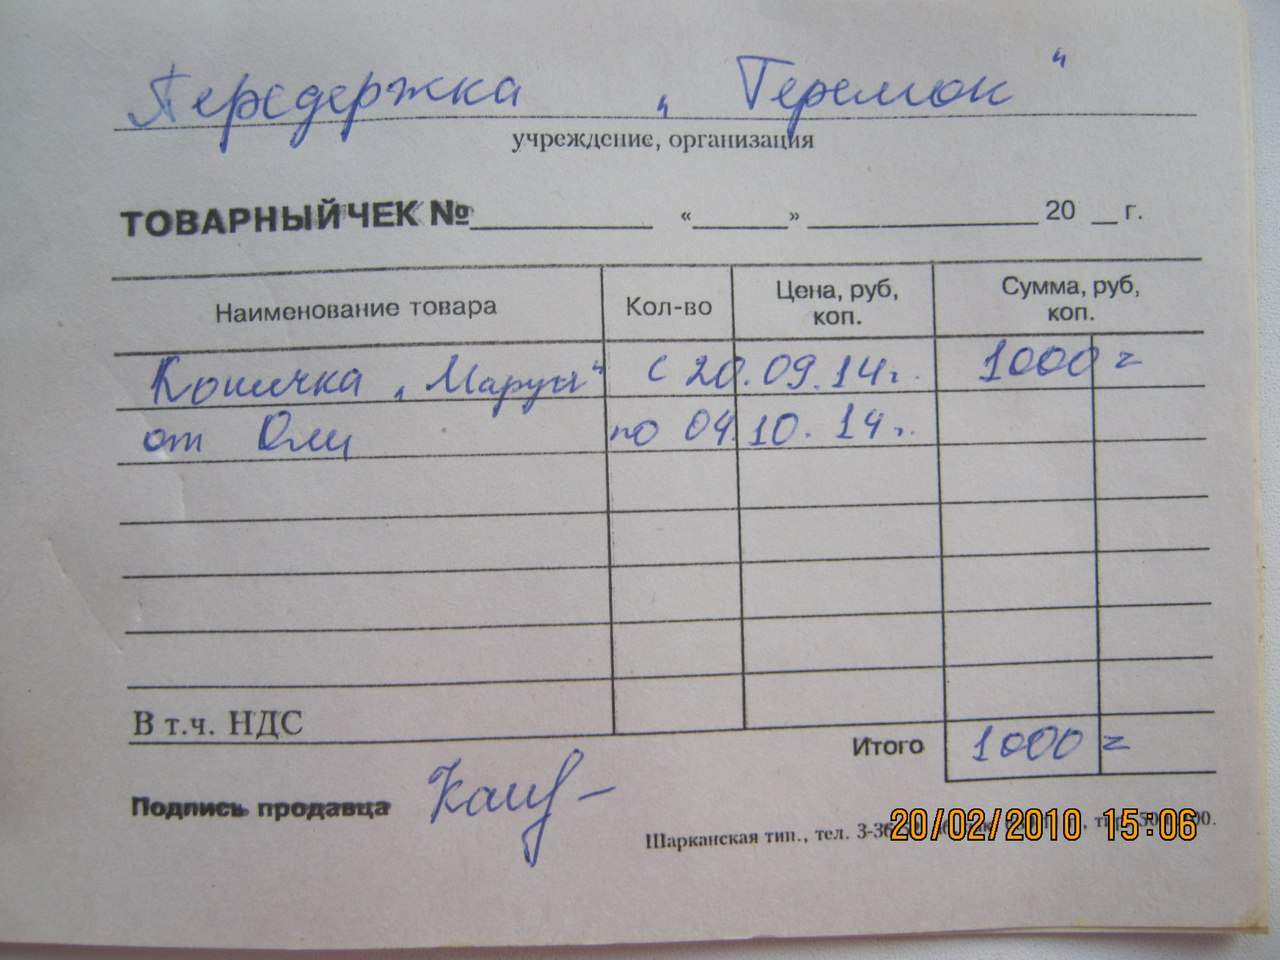 Передержка „ Теремок "
учреждение, организация
ТОВАРНЫЙ ЧЕК № « » 20 г.
Наименование товара Кол-во Цена, руб, коп. Сумма, руб, коп.
Кошечка „ Маруся" с 20.09.14г. 1000 =
от Оли по 04.10.14г.
В т.ч. НДС
Итого 1000 =
Подпись продавца
Шарканская тип., тел. 3-36
20/02/2010 15:06